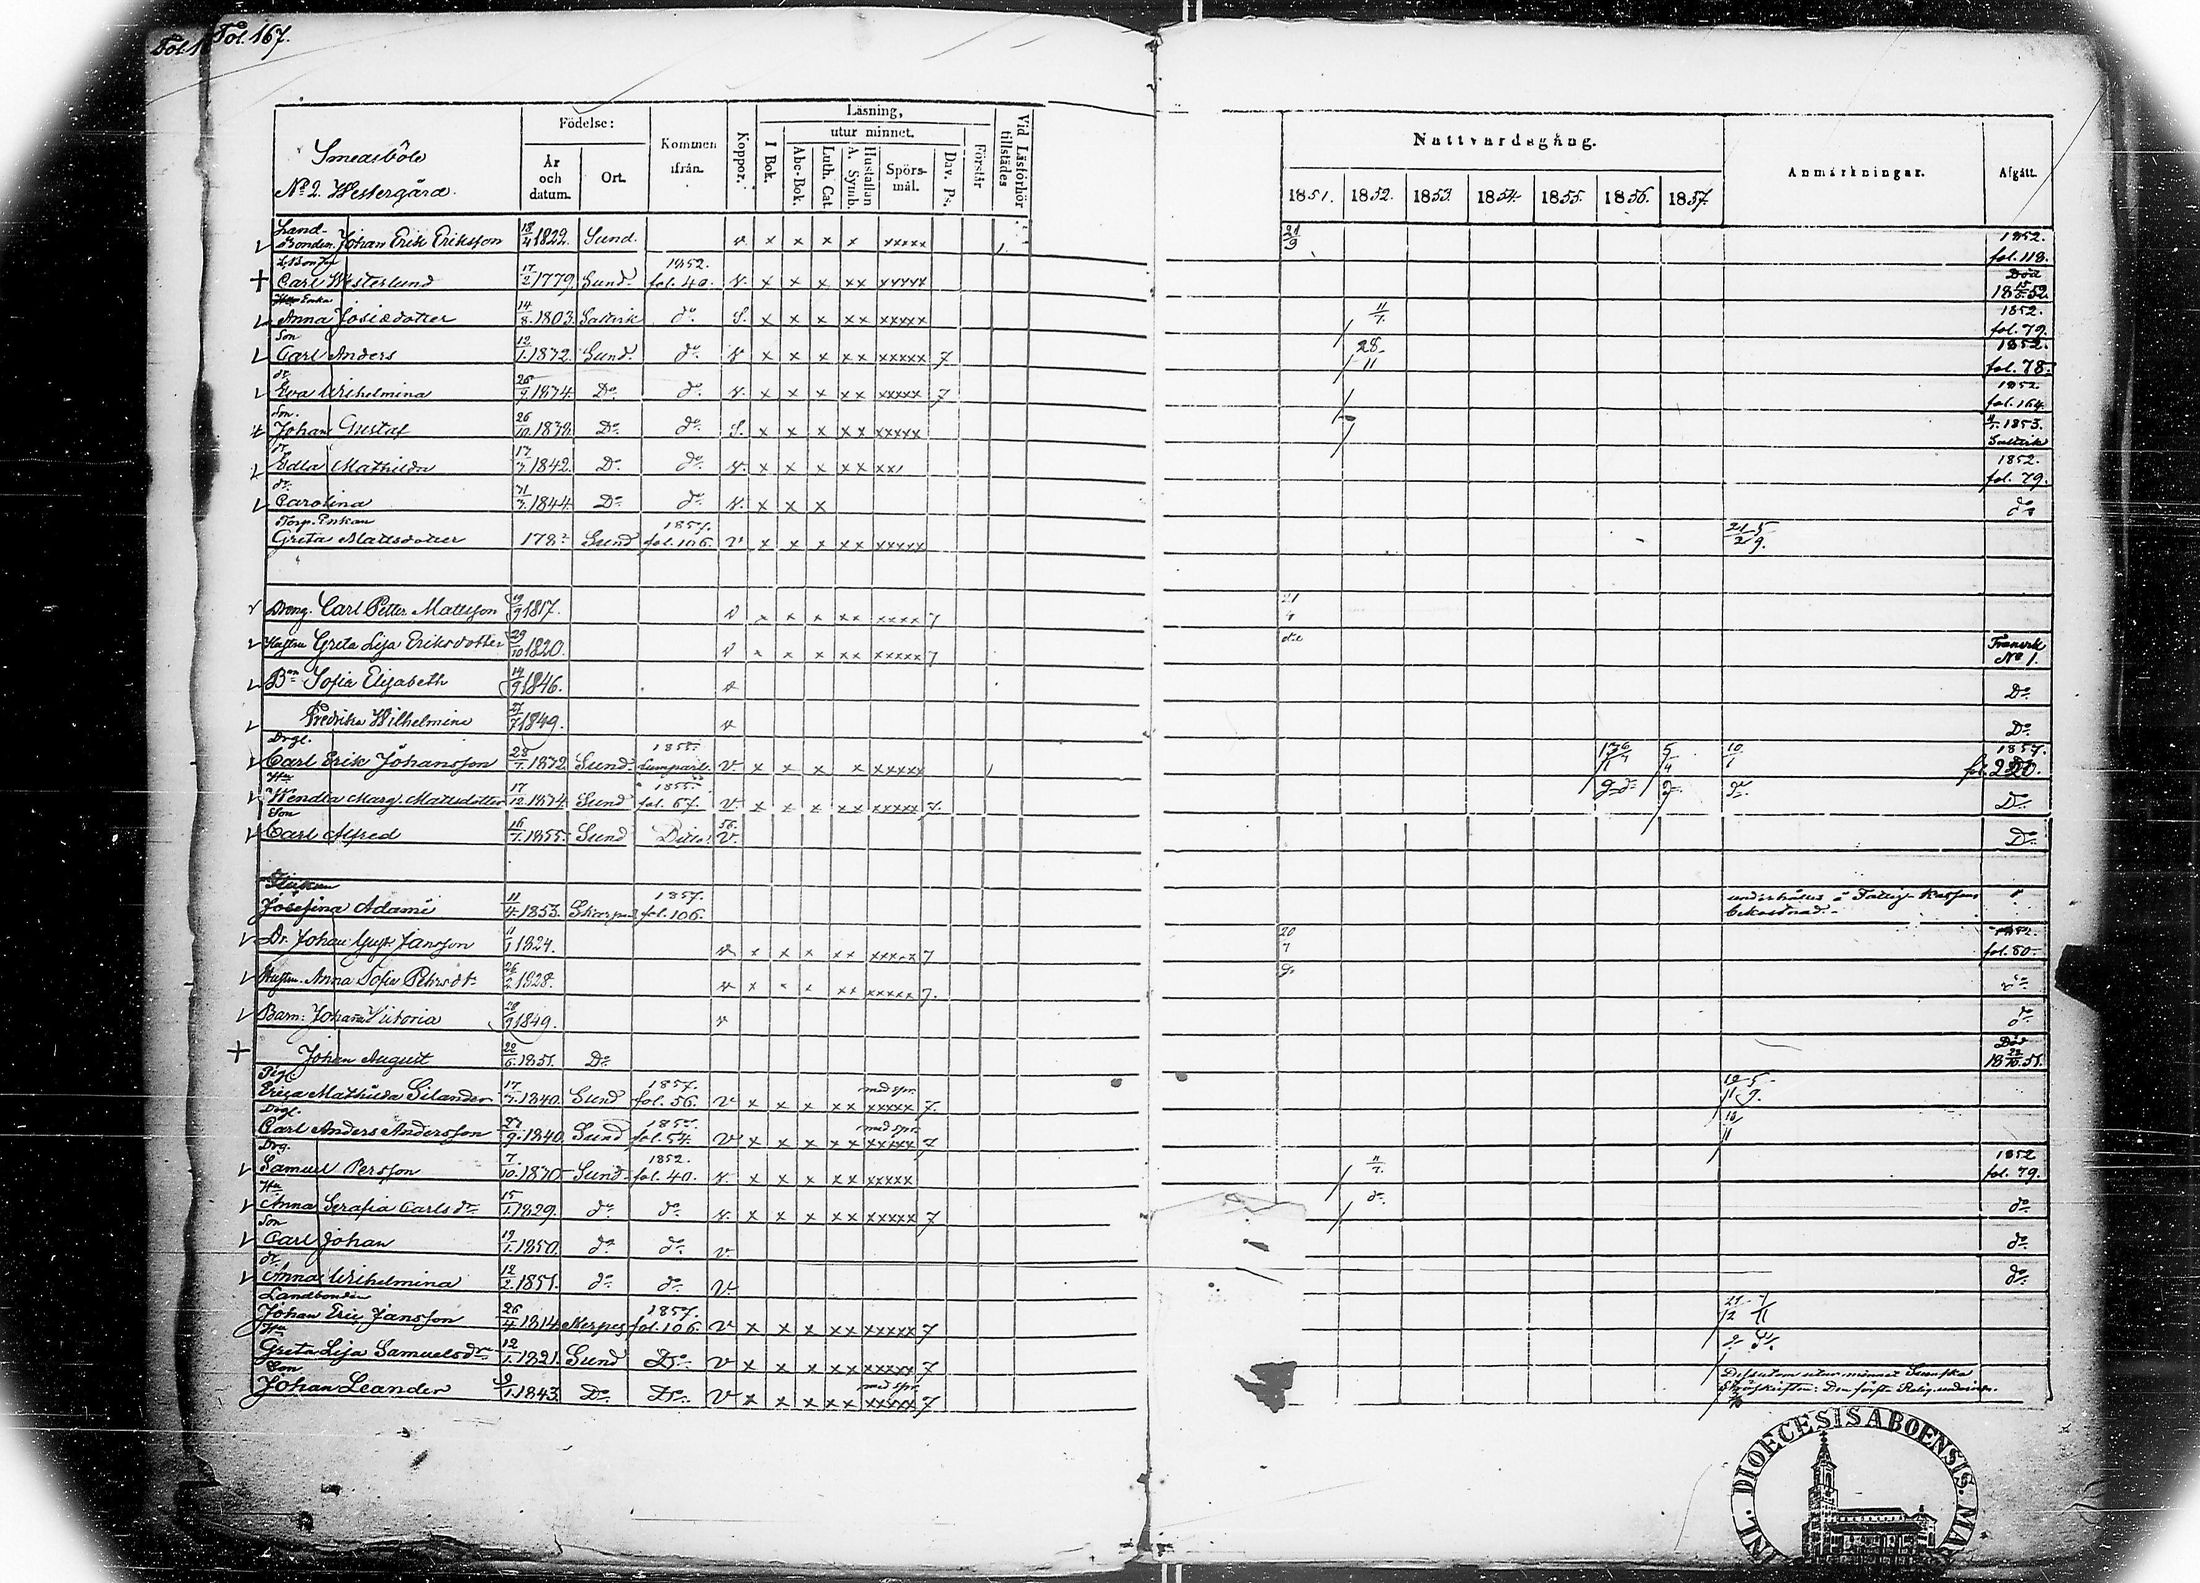 Fol. 167.
Smedsböle
No 2. Westergård.
Födelse:
År och datum.
Ort.
Kommen ifrån.
Koppor.
Läsning,
I Bok.
utur minnet.
Abc-Bok.
Luth. Cat.
A. Symb.
Hustaflan
Spörsmål.
Dav. Ps.
Förstår
Vid Läsförhör tillstädes
Nattvardsgång.
1851. 1852. 1853. 1854. 1855. 1856. 1857.
Anmärkningar.
Afgått.
Land-
Bonden Johan Erik Eriksson 18/4 1822. Sund. v. x x x x xxxxx 21/9 1852. fol. 118.
Carl Westerlund 17/2 1779. Sund. 1852. fol. 40. v. x x x xx xxxxx Död 18 52.
Enka
Anna Josiædotter 14/8 1803. Saltvik do S. x x x xx xxxxx 11/7. 1852. fol. 79.
Son
Carl Anders 12/1. 1832. Sund. do v x x x xx xxxxx 7 28/11 1852. fol. 78.
dr.
Eva Wilhelmina 26/9 1834. Do do v. x x x xx xxxxx 7 1852. fol. 164.
Son.
Johan Gustaf 26/10. 1838. Do do S. x x x xx xxxxx 1853. Saltvik
dr.
Edla Mathilda 17/7. 1842. Do do v. x x x xx xx 1852. fol. 79.
dr.
Carolina 31/7. 1844. Do do v. x x x do
Torp. Enkan
Greta Mattsdotter 178 Sund 1857. fol. 106. v x x x xx xxxxx 21/2 5/9.
Dreng. Carl Petter Mattsson 19/9 1817. v x x x xx xxxx 7 21
Hustru Greta Lisa Eriksdotter 29/10 1820. v x x x xx xxxxx 7 do Framvik No 1.
Bn Sofia Elisabeth 14/9 1846. v Do
Fredrika Wilhelmina 1849. v Do
Drgl.
Carl Erik Johansson 28/7. 1832 Sund. 1855. Lumparl. v. x x x x xxxxx 5/4 10/1 1857. fol. 220.
Hu
Wendla Marg. Mattsdotter 17/12. 1834. Sund 1855. fol. 67. v. x x x xx xxxxx 7. do do do Do
Son
Carl Alfred 16/7. 1855. Sund Ditto. 56. v. Do
Josefina Adami 11/4. 1853. 1857. fol. 106. underhålles å Fattig-Kassans bekostnad.
Dr. Johan Gust. Jansson 11/1 1824. v x x x xx xxxxx 7 20/7 1852. fol. 80.
Hustru. Anna Sofia Pehrsdr. 1828. v x x x xx xxxxx 7. do do
Barn: Johanna Victoria 1849. v do
Johan August 22/6. 1851. Do Död 18 22/10. 51.
Pig.
Erica Mathilda Silander 17/7. 1840. Sund 1857. fol. 56. v x x x xx med spr. xxxxx 7.
Drgl.
Carl Anders Andersson 27/9. 1840. Sund 1857. fol. 54. v x x x xx med spr. xxxxx 7
Drg.
Samuel Persson 7/10. 1830. Sund 1852. fol. 40. v. x x x xx xxxxx 11/7. 1852 fol. 79.
Hu
Anna Serafia Carlsdr. 15/1. 1829. do do v. x x x xx xxxxx 7 do do
Son
Carl Johan 19/1. 1850. do do v. do
dr.
Anna Wilhelmina 12/2. 1851. do do v. do
Landbonden
Johan Eric Jansson 26/4 1814. 1857. fol. 106. v x x x xx xxxxx 7
Hu
Greta Lisa Samuelsdr. 12/1. 1821. Sund Do v x x x xx xxxxx 7
Son
Johan Leander 9/1. 1843. Do Do v x x x xx med spr. xxxxx 7 Dessutom utur minnet Svenska
DIOECESIS ABOENSIS. MA